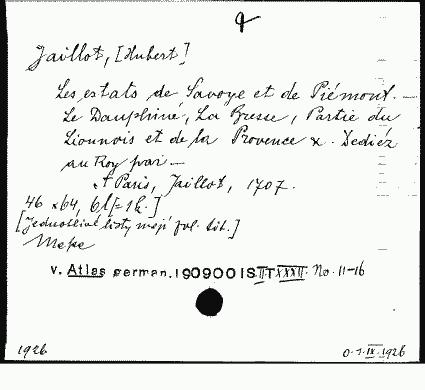 q
Jaillot, [Hubert]
Les estats de Savoye et de Piémont. —
Le Dauphiné, La Bresse, Partie du
Lionnois et de la Provence x. Dediéz
au Roy par —
Paris, Jaillot, 1707.
46 x 64, 6 l [= 1 k.]
[Jednotlivé listy mají pol. tit.]
Mapa
v. Atlas german. 190900 IS II T XXXII. No. 11-16
1926 0.1.IX.1926